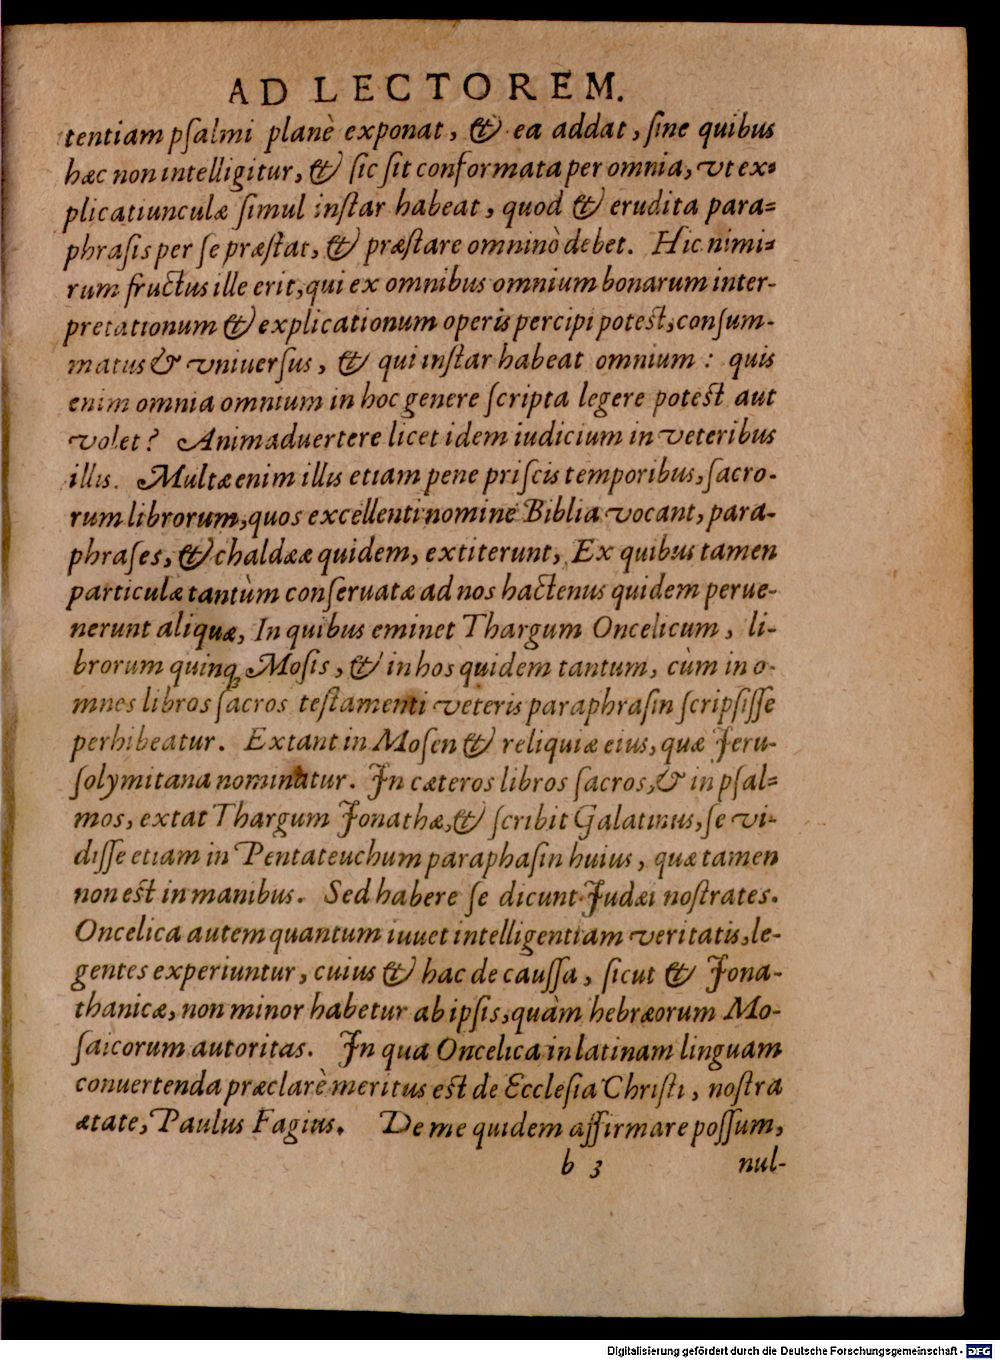 AD LECTOREM.
tentiam psalmi planè exponat, & ea addat, sine quibus
hæc non intelligitur, & sic sit conformata per omnia, vt ex-
plicatiunculæ simul instar habeat, quod & erudita para-
phrasis per se præstat, & præstare omninò debet. Hic nimi-
rum fructus ille erit, qui ex omnibus omnium bonarum inter-
pretationum & explicationum operis percipi potest, consum-
matus & vniuersus, & qui instar habeat omnium : quis
enim omnia omnium in hoc genere scripta legere potest aut
volet? Animaduertere licet idem iudicium in veteribus
illis. Multæ enim illis etiam pene priscis temporibus, sacro-
rum librorum, quos excellenti nomine Biblia vocant, para-
phrases, & chaldææ quidem, extiterunt, Ex quibus tamen
particulæ tantùm conseruatæ ad nos hactenus quidem perue-
nerunt aliquæ, In quibus eminet Thargum Oncelicum, li-
brorum quinq; Mosis, & in hos quidem tantum, cùm in o-
mnes libros sacros testamenti veteris paraphrasin scripsisse
perhibeatur. Extant in Mosen & reliquiæ eius, quæ Jeru-
solymitana nominatur. In cæteros libros sacros, & in psal-
mos, extat Thargum Jonathæ, & scribit Galatinus, se vi-
disse etiam in Pentateuchum paraphasin huius, quæ tamen
non est in manibus. Sed habere se dicunt Judæi nostrates.
Oncelica autem quantum iuuet intelligentiam veritatis, le-
gentes experiuntur, cuius & hac de caussa, sicut & Jona-
thanicæ, non minor habetur ab ipsis, quàm hebræorum Mo-
saicorum autoritas. In qua Oncelica in latinam linguam
conuertenda præclarè meritus est de Ecclesia Christi, nostra
ætate, Paulus Fagius. De me quidem affirmare possum,
b 3 nul-
Digitalisierung gefördert durch die Deutsche Forschungsgemeinschaft - DFG